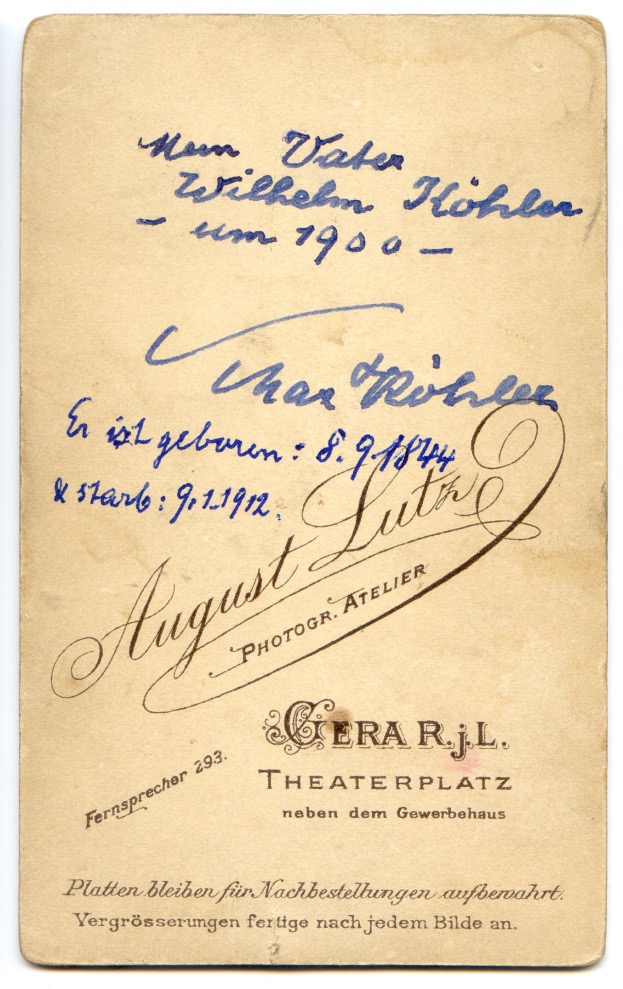 Mein Vater
Wilhelm Köhler
- um 1900 -
Max Köhler
Er ist geboren: 8.9.1844
& starb: 9.1.1912.
August Lutz
PHOTOGR. ATELIER
GERA R.j.L.
THEATERPLATZ
neben dem Gewerbehaus
Fernsprecher 293.
Platten bleiben für Nachbestellungen aufbewahrt.
Vergrösserungen fertige nach jedem Bilde an.